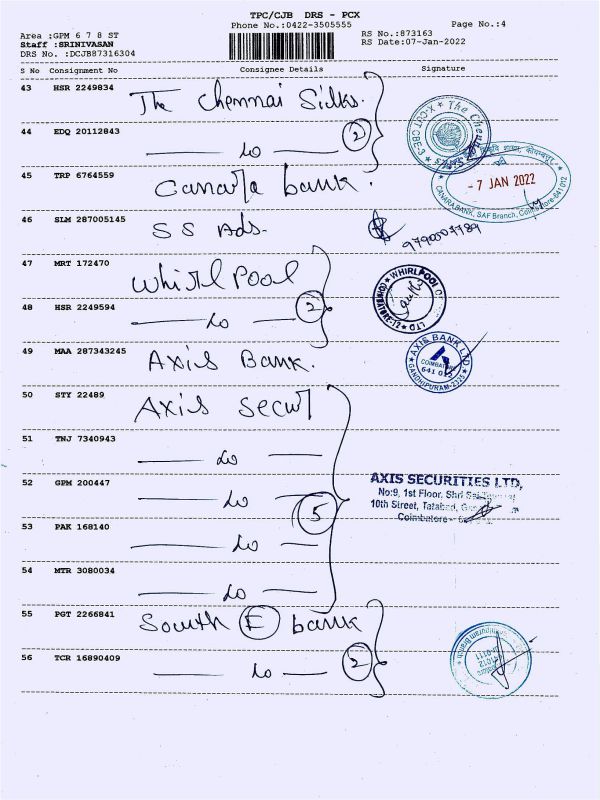 TPC/CJB DRS - PCX
Phone No.:0422-3505555
Page No.:4
Area :GPM 6 7 8 ST
Staff :SRINIVASAN
DRS No. :DCJB87316304
RS No.:873163
RS Date:07-Jan-2022
S No Consignment No Consignee Details Signature
43 HSR 2249834 The Chennai Silks.
44 EDQ 20112843 — do — 2
45 TRP 6764559 Canara bank.
- 7 JAN 2022
CANARA BANK, SAF Branch, Coimbatore-641 012
46 SLM 287005145 SS Ads.
47 MRT 172470 Whirl Pool
WHIRLPOOL OF
48 HSR 2249594 — do — 2
49 MAA 287343245 Axis Bank.
AXIS BANK LTD
COIMBATORE
GANDHIPURAM-2325
50 STY 22489 Axis Secur
51 TNJ 7340943 — do —
52 GPM 200447 — do — 5
AXIS SECURITIES LTD,
No:9, 1st Floor, Shri Sai
10th Street, Tatabad,
Coimbatore -
53 PAK 168140 — do —
54 MTR 3080034 — do —
55 PGT 2266841 South E bank
56 TCR 16890409 — do — 2